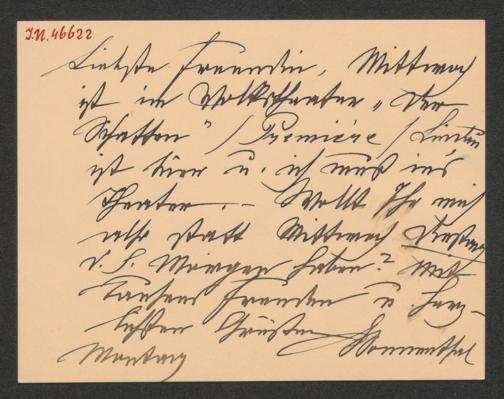 I.N. 46622
Liebste Freundin, Mittwoch
ist im Volkstheater „Der
Schatten" /Première/ Lindau
ist hier u. ich muß ins
Theater. – Wollt Ihr mich
also statt Mittwoch Dienstag
d. h. Morgen haben? Mit
tausend Freuden u. herz-
lichsten Grüßen Sonnenthal
Montag